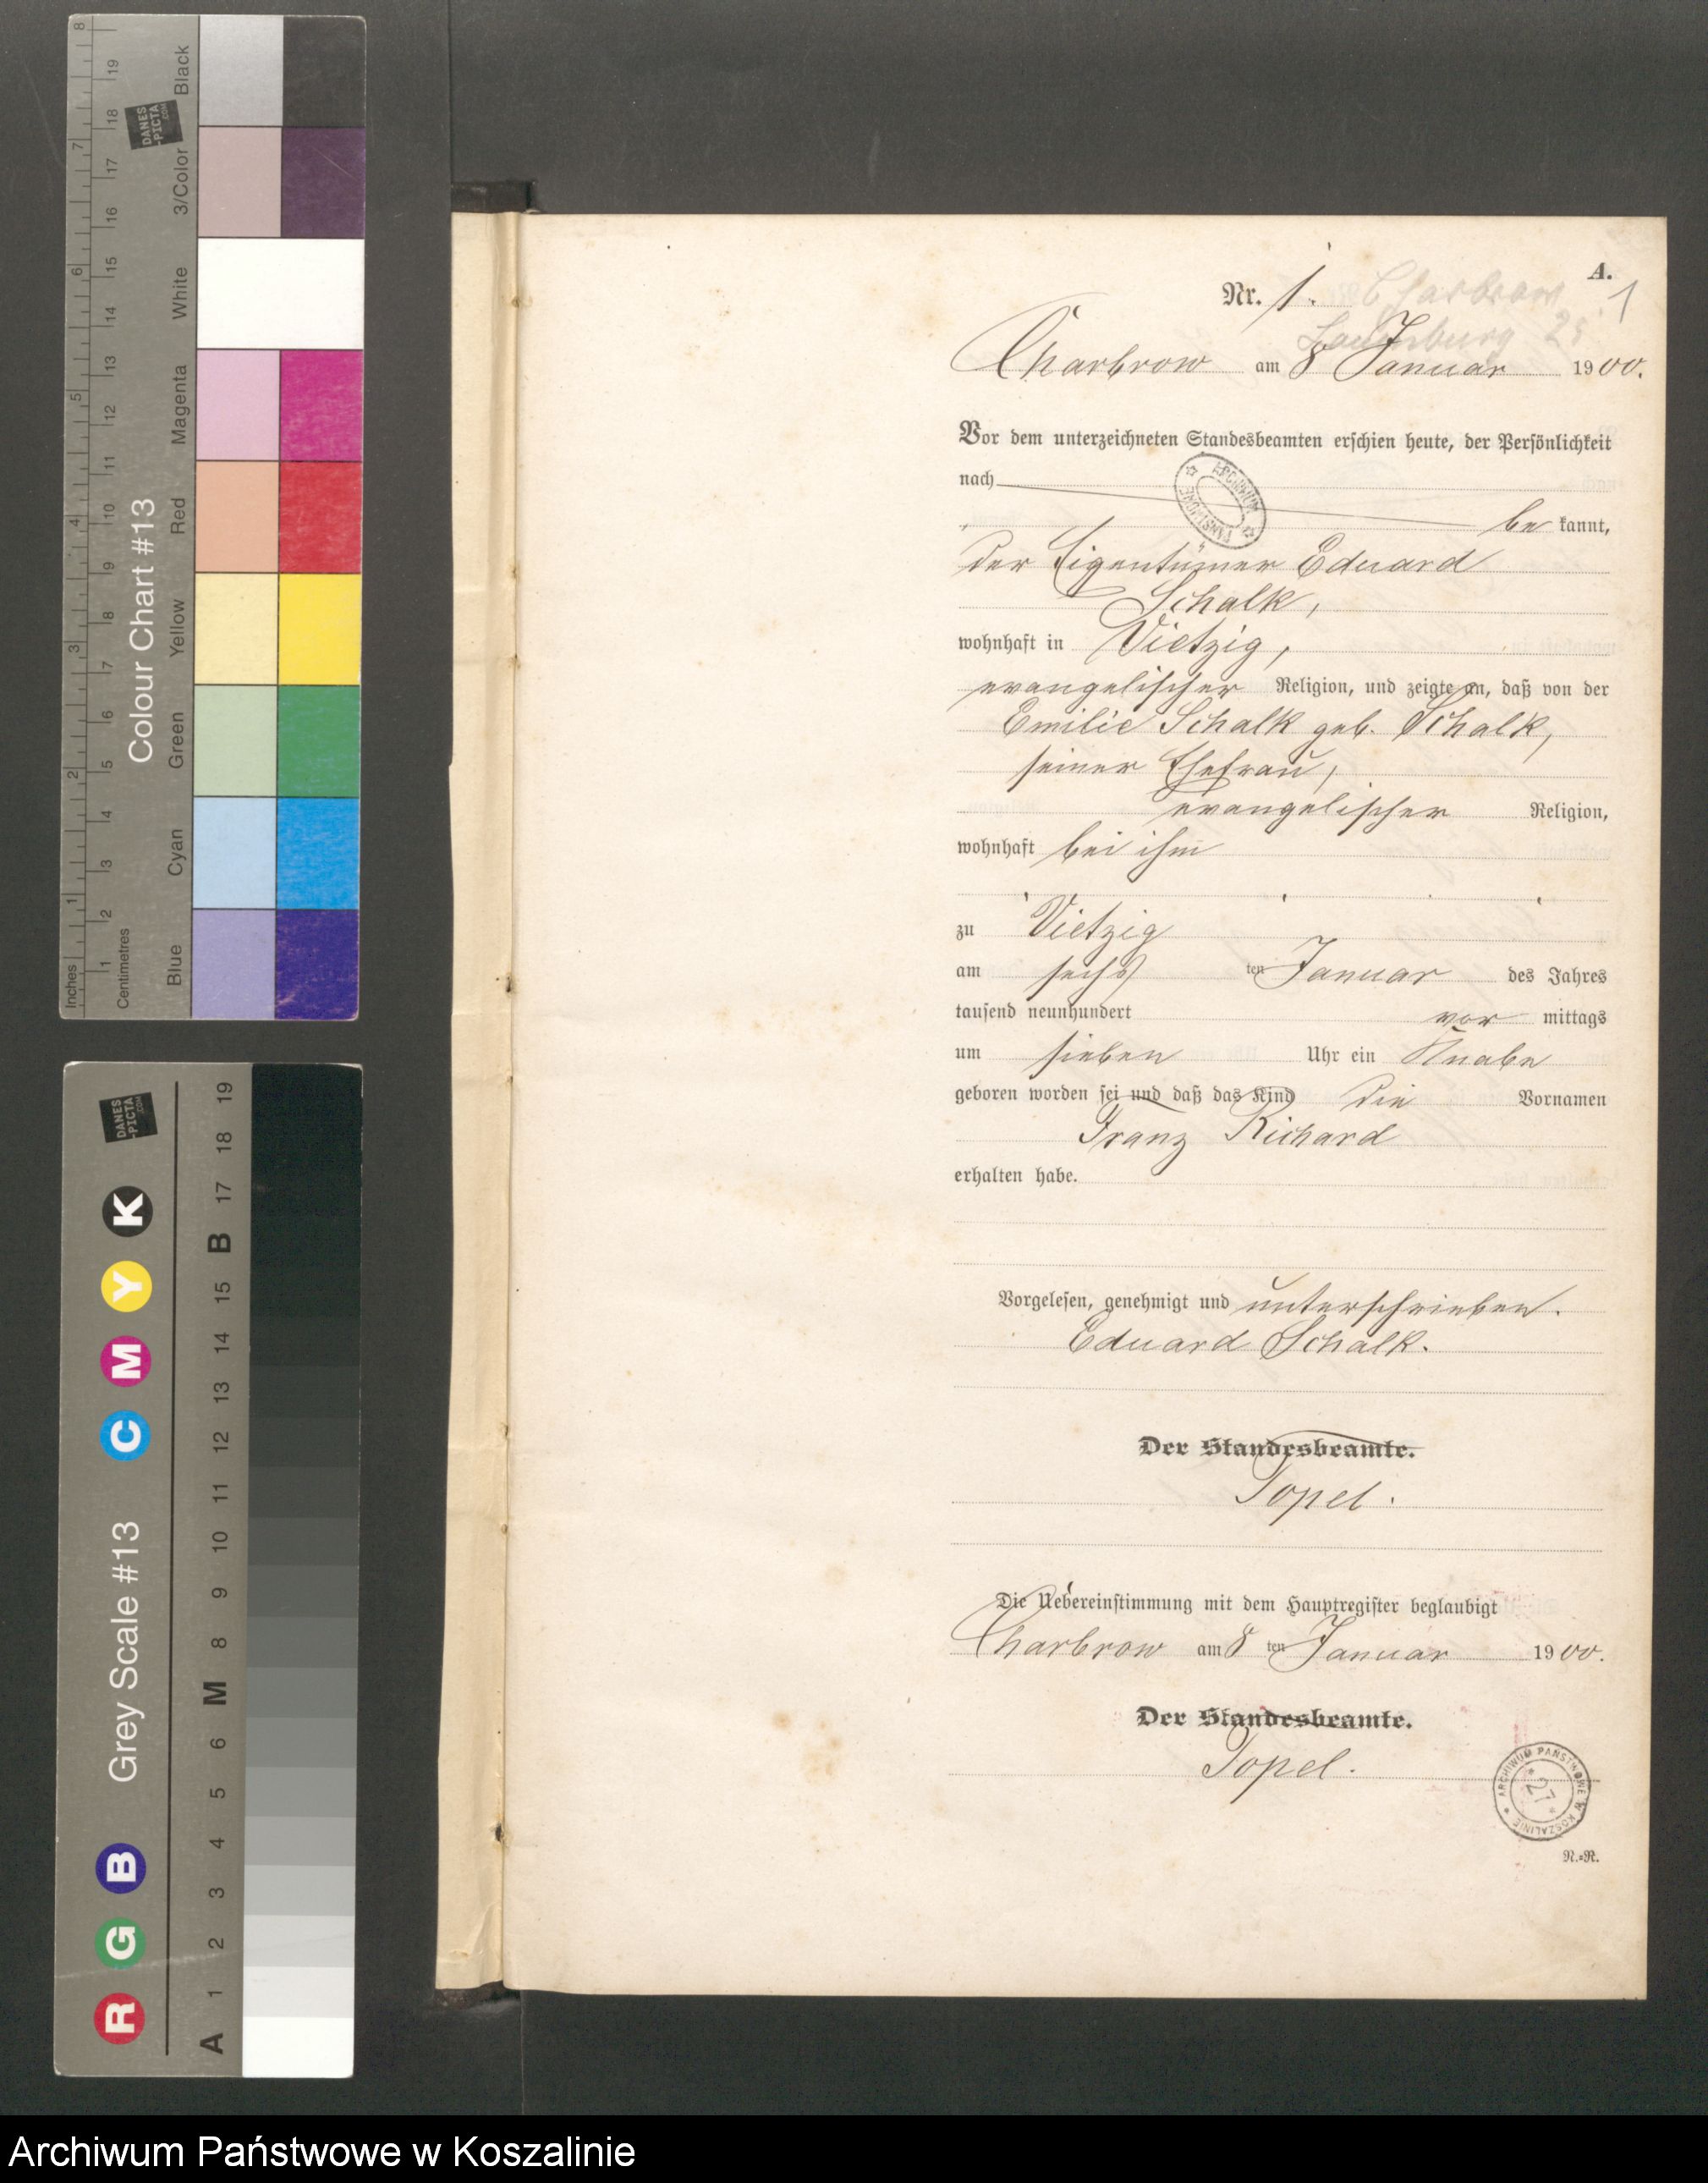 A.
Nr. 1. Charbrow 1
Lauenburg 25
Charbrow am 8 Januar 1900.
Vor dem unterzeichneten Standesbeamten erschien heute, der Persönlichkeit
nach
be kannt,
der Eigentümer Eduard
Schalk,
wohnhaft in Vietzig,
evangelischer Religion, und zeigte an, daß von der
Emilie Schalk geb. Schalk,
seiner Ehefrau,
evangelischer Religion,
wohnhaft bei ihm
zu Vietzig
am sechs ten Januar des Jahres
tausend neunhundert vor mittags
um sieben Uhr ein Knabe
geboren worden sei und daß das Kind die Vornamen
Franz Richard
erhalten habe.
Vorgelesen, genehmigt und unterschrieben.
Eduard Schalk.
Der Standesbeamte.
Topel.
Die Uebereinstimmung mit dem Hauptregister beglaubigt
Charbrow am 8 ten Januar 1900.
Der Standesbeamte.
Topel.
ARCHIWUM PAŃSTWOWE W KOSZALINIE
27
N.=R.
ARCHIWUM PAŃSTWOWE
Colour Chart #13
Blue Cyan Green Yellow Red Magenta White 3/Color Black
Inches 1 2 3 4 5 6 7 8
Centimetres 1 2 3 4 5 6 7 8 9 10 11 12 13 14 15 16 17 18 19
DANES
-PICTA
.COM
Grey Scale #13
R G B C M Y K
A 1 2 3 4 5 6 M 8 9 10 11 12 13 14 15 B 17 18 19
DANES
-PICTA
.COM
Archiwum Państwowe w Koszalinie